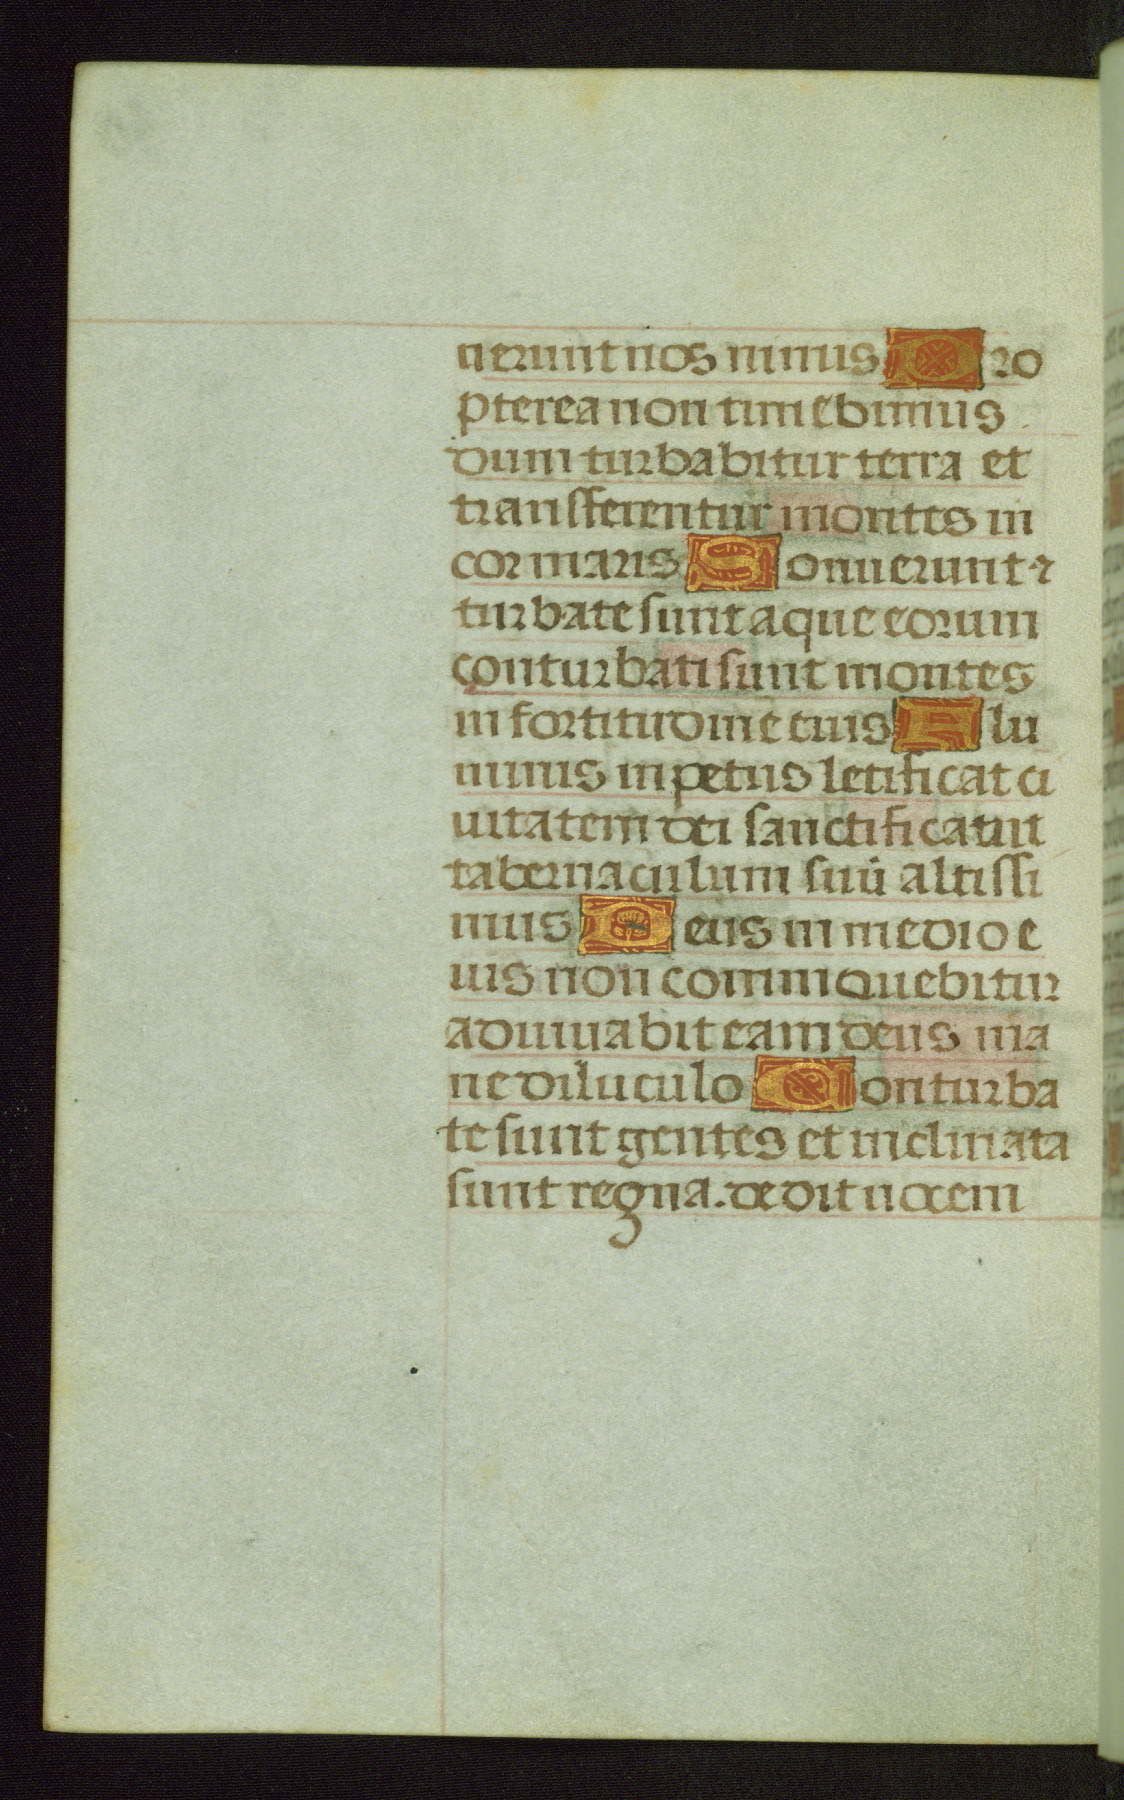 uerunt nos nimis Pro
pterea non timebimus
dum turbabitur terra et
transferentur montes in
cor maris Sonuerunt ⁊
turbate sunt aque eorum
conturbati sunt montes
in fortitudine eius Flu
minis inpetus letificat ci
uitatem dei sanctificauit
tabernaculum suū altissi
mus Deus in medio e
uis non commouebitur
adiuuabit eam deus ma
ne diluculo Conturba
te sunt gentes et inclinata
sunt regna. dedit uocem